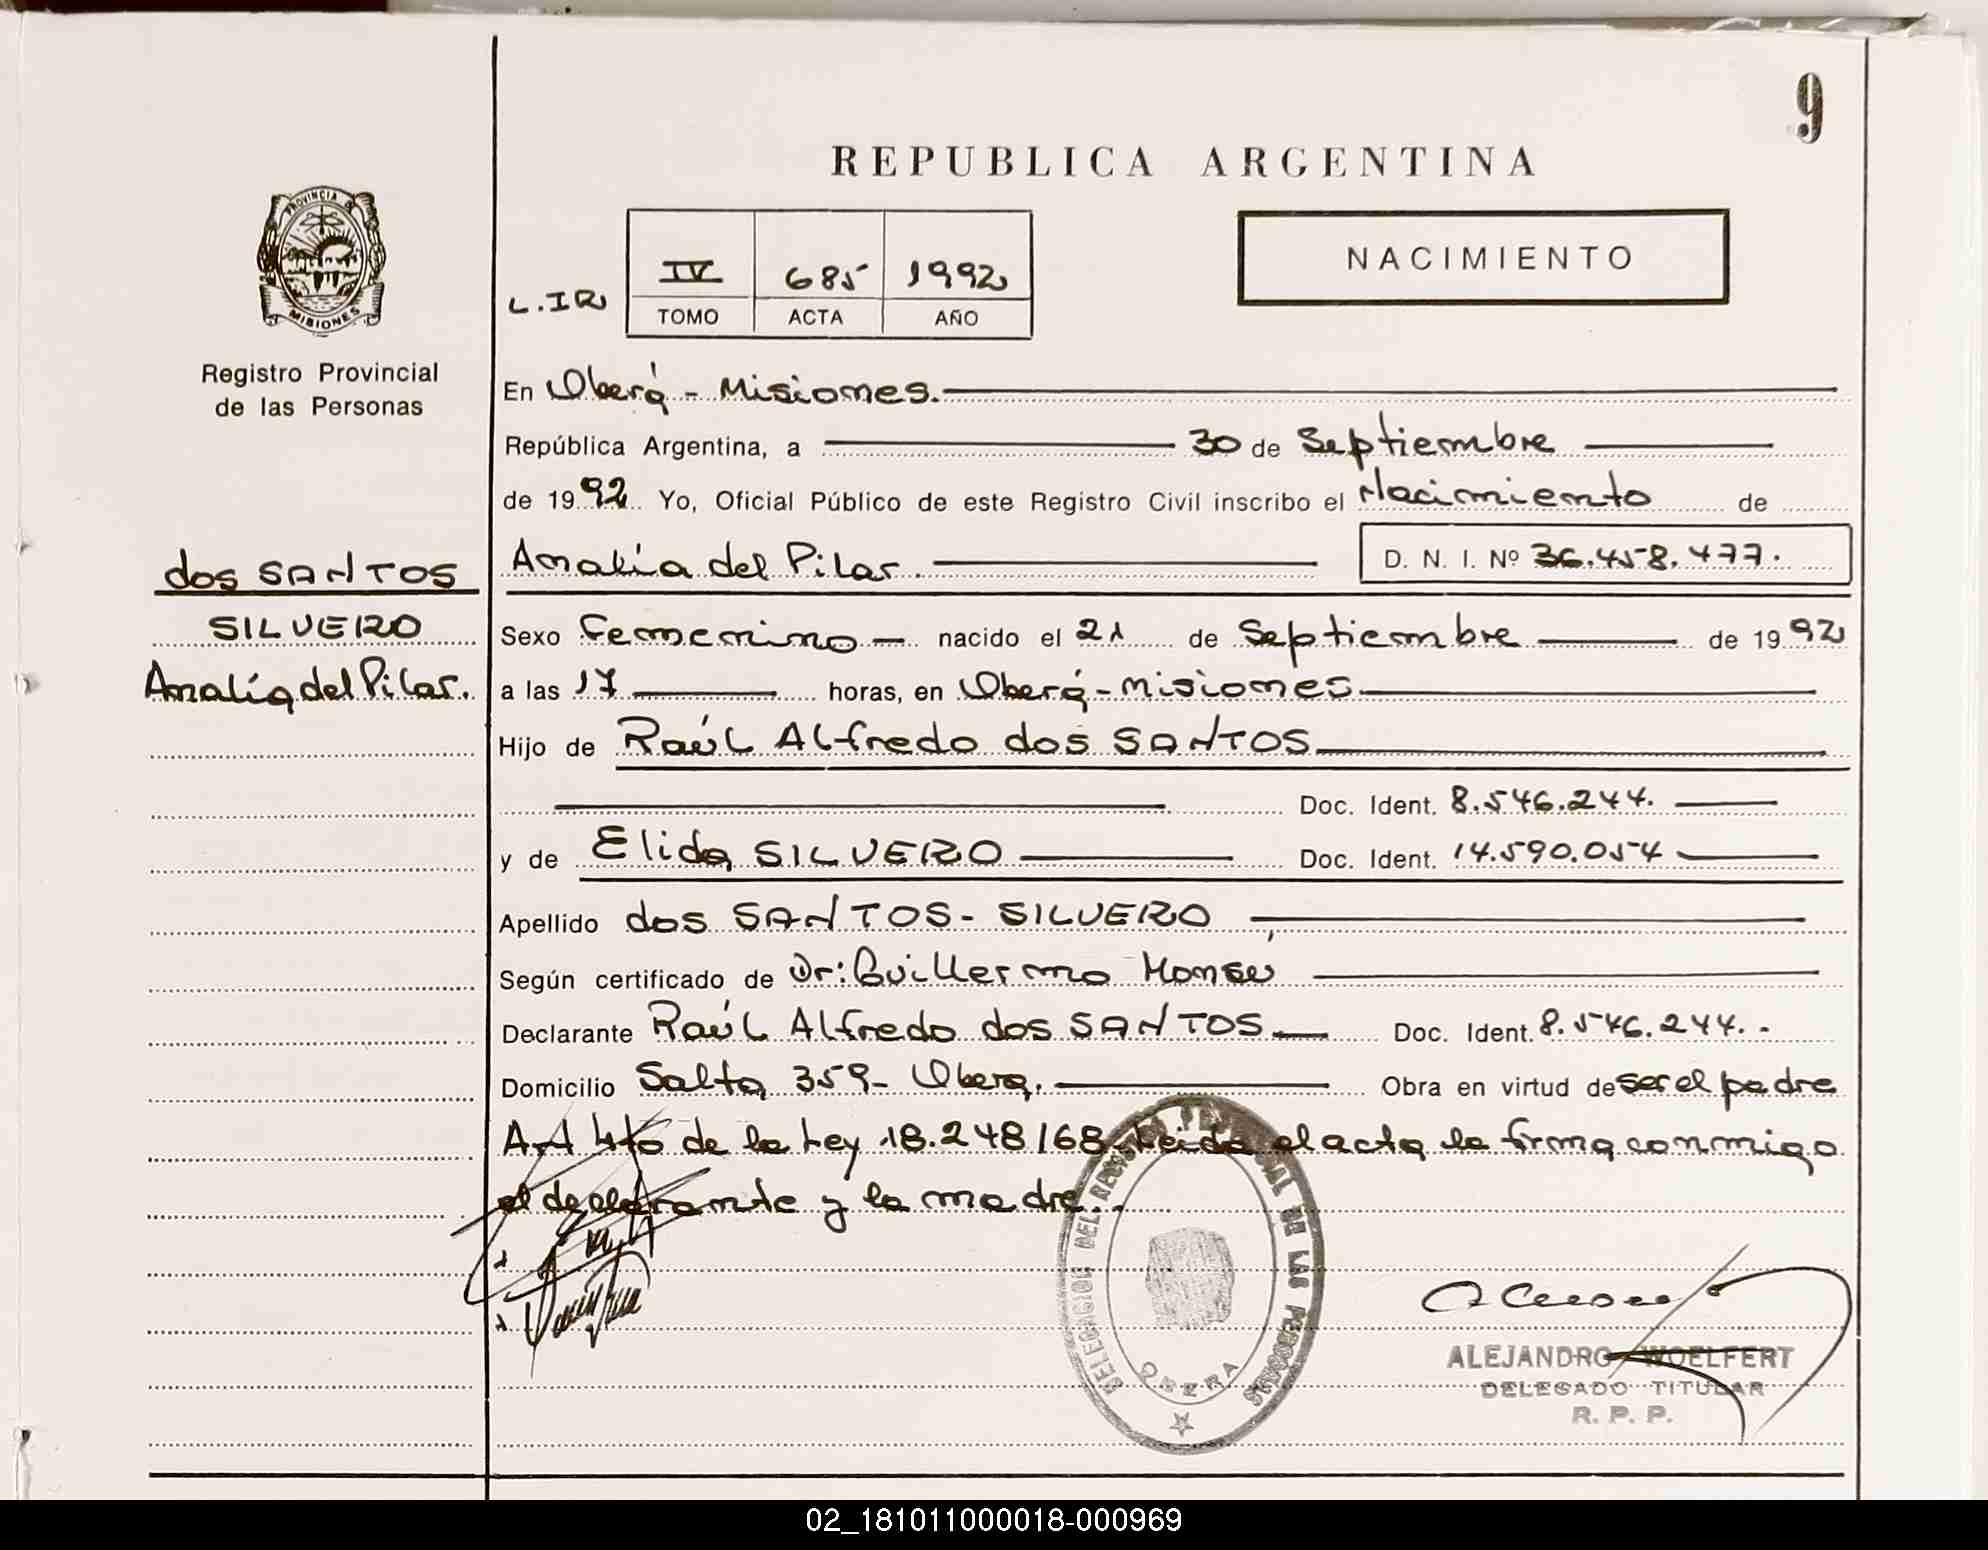 9
REPUBLICA ARGENTINA
PROVINCIA DE
MISIONES
Registro Provincial
de las Personas
NACIMIENTO
L.IR IV 685 1992
TOMO ACTA AÑO
En Oberá - Misiones.
República Argentina, a 30 de Septiembre
de 1992 Yo, Oficial Público de este Registro Civil inscribo el Nacimiento de
dos SANTOS
SILVERO
Amalia del Pilar.
Amalia del Pilar. D. N. I. Nº 36.458.477.
Sexo Femenino - nacido el 21 de Septiembre de 1992
a las 17 horas, en Oberá - Misiones.
Hijo de Raúl Alfredo dos SANTOS
Doc. Ident. 8.546.244.
y de Elida SILVERO Doc. Ident. 14.590.054
Apellido dos SANTOS - SILVERO
Según certificado de Dr: Guillermo Monsú
Declarante Raúl Alfredo dos SANTOS Doc. Ident. 8.546.244.-
Domicilio Salta 359- Oberá. Obra en virtud de ser el padre
Art 4to de la Ley 18.248/68. Leida el acta la firma conmigo
el declarante y la madre..
DELEGACION DEL REGISTRO PROVINCIAL DE LAS PERSONAS
OBERA
ALEJANDRO WOELFERT
DELEGADO TITULAR
R. P. P.
02_181011000018-000969